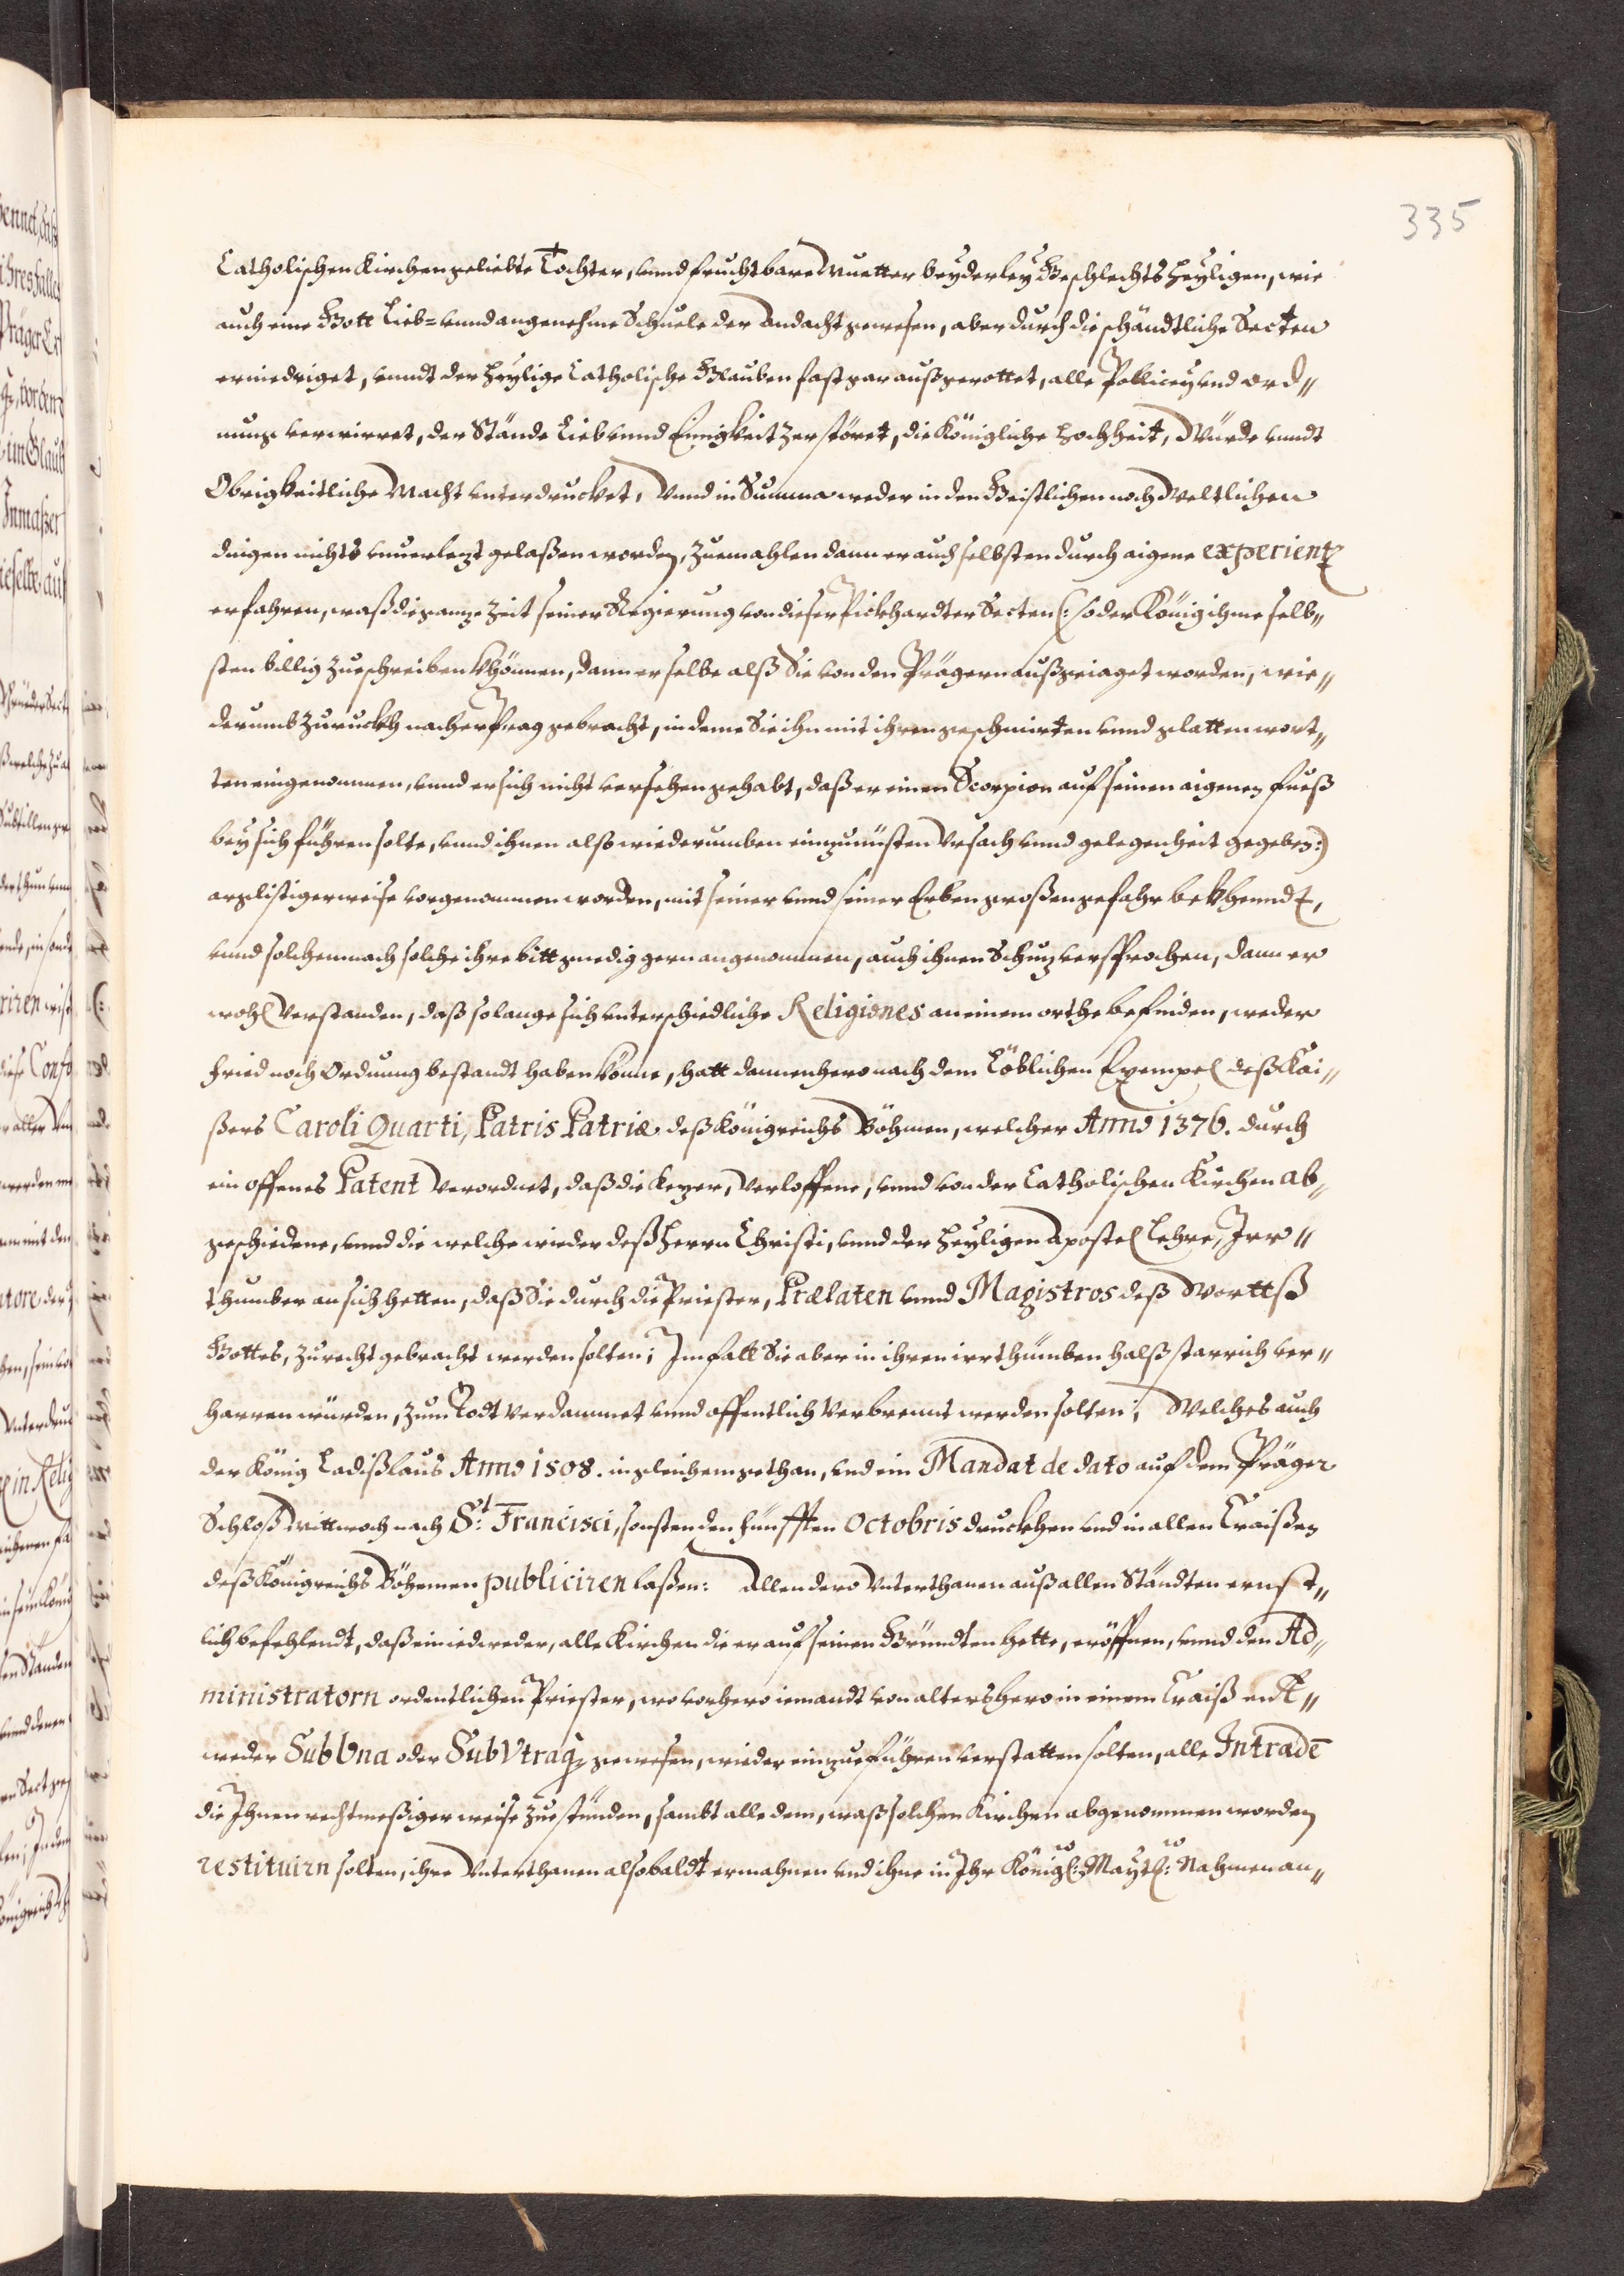 335
Catholischen Kirchen geliebte Tochter, vnnd fruchtbare Muetter beyderley Geschlechts Heyligen, wie
auch eine Gott Lieb= vnnd angenehme Schuele der Andacht gewesen, aber durch die schändtliche Secten
erniedriget, vnndt der Heylige Catholische Glauben fast gar außgerottet, alle Pollicey vnd ord„
nung verwirret, der Stände Lieb vnnd Einigkeit zerstöret, die Königliche Hochheit, Würde vnndt
Obrigkeitliche Macht vnterdrucket, Vnnd in Summa weder in den Geistlichen noch Weltlichen
dingen nichts vnuerlezt gelaßen worden, Zuemahlen dann er auch selbsten durch aigene experientz
erfahren, waß die ganze Zeit seiner Regierung von dieser Pickhardter Secten (: so der König ihme selb„
sten billig zueschreiben khönnen, dann er selbe alß Sie von den Prägern außgeiaget worden, wie„
derumb zuruckh nacher Prag gebracht, in deme Sie ihn mit ihren geschmirten vnnd glatten wort„
ten eingenommen, vnnd er sich nicht versehen gehabt, daß er einen Scorpion auf seinen aigenen fueß
bey sich führen solte, vnnd ihnen alß wiederumben einzunisten Vrsach vnnd gelegenheit gegeben:)
arglistigerweise vorgenommen worden, mit seiner vnnd seiner Erben großen gefahr bekhenndt,
vnnd solchemnach solche ihre bitt gnedig gern angenommen, auch ihnen Schuz versprochen, dann er
wohl Verstanden, daß solange sich vnterschiedliche Religiones an einem orthe befinden, weder
Fried noch Ordnung bestandt haben könne, hatt dannenhero nach dem Löblichen Exempel deß Kai„
ßers Caroli Quarti, Patris Patriæ deß Königreichs Böhmen, welcher Anno 1376. durch
ein offenes Patent Verordnet, daß die Kezer, Verloffene, vnnd von der Catholischen Kirchen ab„
geschiedene, vnnd die welche wieder deß Herrn Christi, vnnd der Heyligen Apostel Lehre, Irr„
thumber an sich hetten, daß Sie durch die Priester, Prælaten vnnd Magistros deß Worttß
Gottes, zurecht gebracht werden solten; Im fall Sie aber in ihren irrthumben halßstarrich ver„
harren würden, zum Todt Verdammet vnnd offentlich Verbrennt werden solten; Welches auch
der König Ladißlaus Anno 1508. ingleichem gethan, vnd ein Mandat de dato auf dem Präger
Schloß Mittwoch nach St: Francisci, sonsten den fünfften Octobris druckhen vnd in allen Craißen
deß Königreichs Böhemen publiciren laßen: Allen dero Vnterthanen auß allen Ständten ernst„
lich befehlendt, daß ein iedweder, alle Kirchen die er auf seinen Gründten hette, eröffnen, vnnd den Ad„
ministratorn ordentlichen Priester, wo vorhero iemandt von alters hero in einem Craiß endt„
weder Sub Una oder Sub Vtraq, gewesen, wieder einzueführen verstatten solten, alle Intraden
die Ihnen rechtmeßiger weise zuestünden, sambt alle dem, waß solchen Kirchen abgenommen worden
restituirn solten, ihre Vnterthanen alsobaldt ermahnen vnd ihne in Ihr Königl: Maytl: Nahmen an„